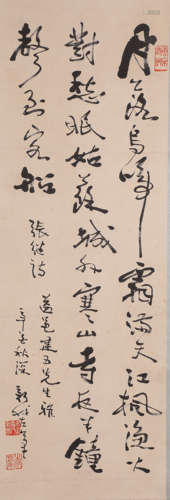 月落烏啼霜滿天江楓漁火
對愁眠姑蘇城外寒山寺夜半鐘
聲到客船
張継詩
建五先生雅
辛酉秋深